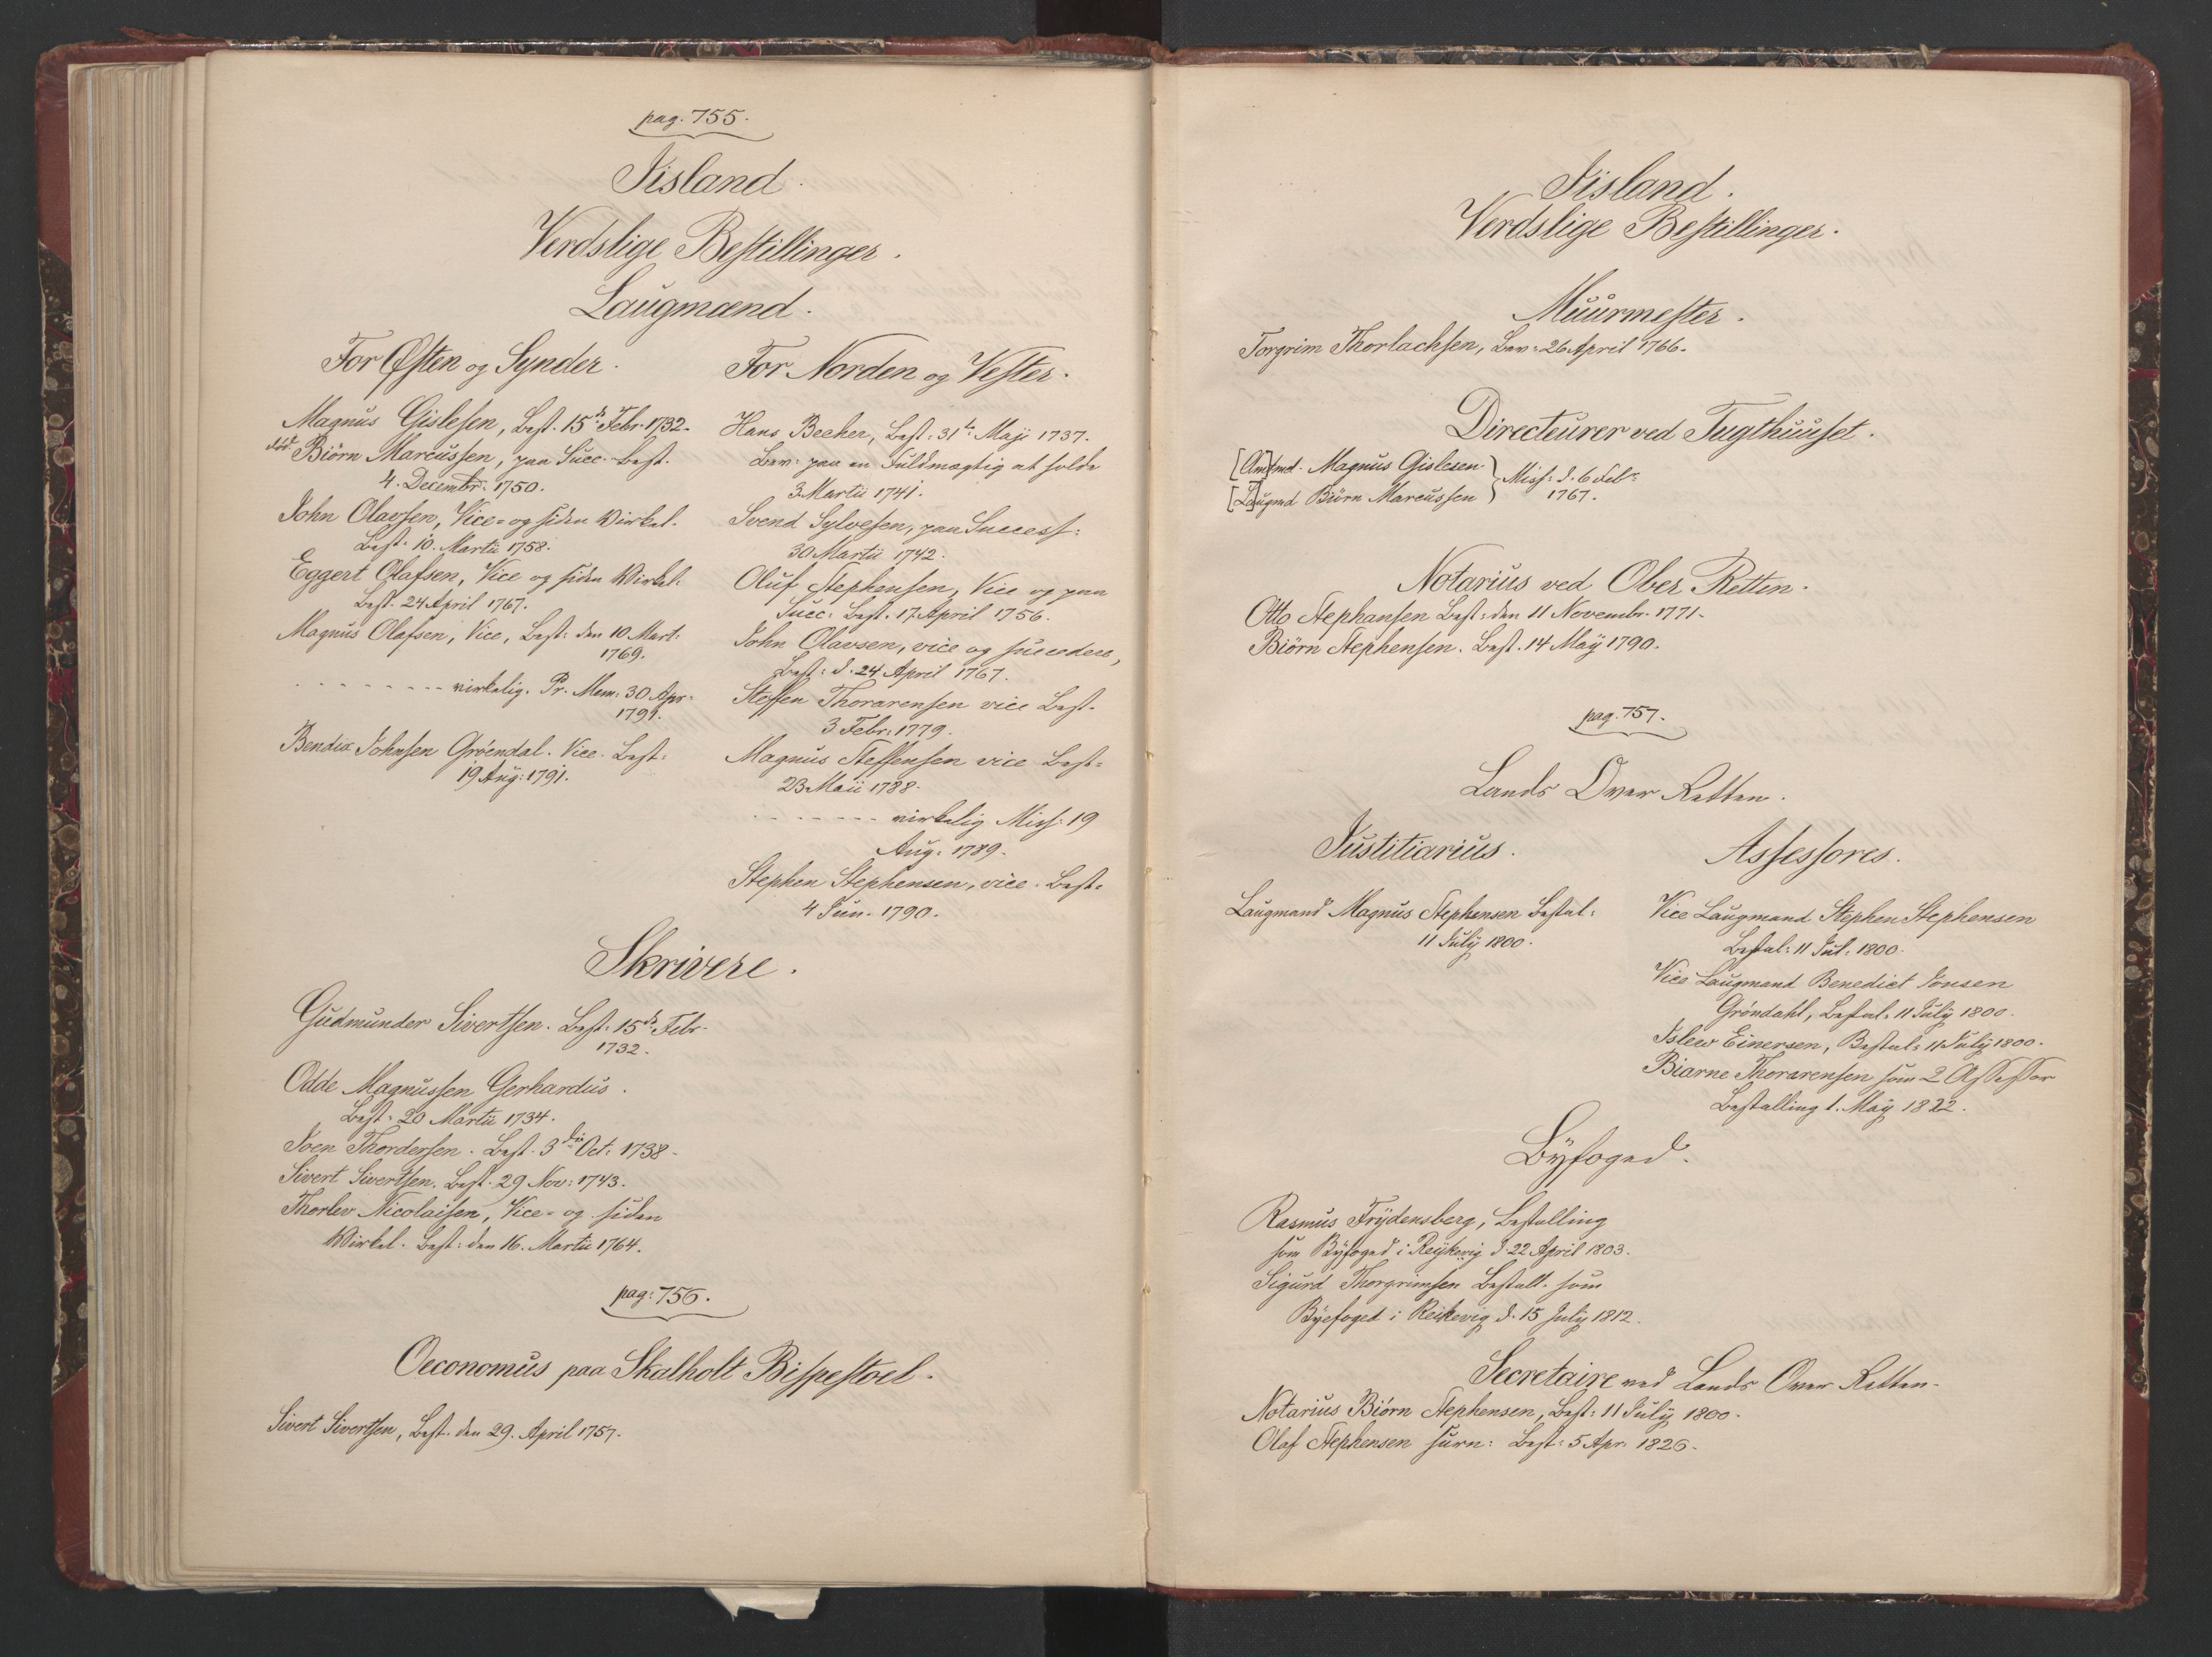 pag. 755.
Iisland.
Verdslige Bestillinger.
Laugmænd.
For Østen og Synder.
Magnus Gislesen, Best. 15de Febr. 1732.
død. Biørn Marcussen, paa Succ. Best.
4. Decembr. 1750.
John Olavsen, Vice- og siden Wirkel.
Best. 10. Martii 1758.
Eggert Olafsen, Vice og siden Wirkel.
Best. 24 April 1767.
Magnus Olafsen, Vice, Best: den 10 Mart:
1769.
- - - - - - - - virkelig. Pr. Mem: 30 Apr.
1791.
Bendix Johnsen Grøendal. Vice. Best:
19 Aug: 1791.
For Norden og Vester.
Hans Becher, Best: 31te Maji 1737.
Bev: paa en Fuldmægtig at holde
3 Martii 1741.
Svend Sylvesen, paa Success:
30 Martii 1742.
Oluf Stephensen, Vice og paa
Succ: Best. 17. April 1756.
John Olavsen, vice og succedere,
Best: d. 24 April 1767.
Steffen Thorarensen vice Best.
3 Febr: 1779.
Magnus Steffensen vice Best:
23 Maii 1788.
- - - - - - - virkelig Miss: 19
Aug: 1789.
Stephen Stephensen, vice. Best.
4 Jun. 1790.
Skrivere.
Gudmunder Sivertsen. Best: 15de Febr.
1732.
Odde Magnussen Gerhardus.
Best: 20 Martii 1734.
Joen Thordersen. Best. 3die Oct: 1738.
Sivert Sivertsen. Best. 29 Nov: 1743.
Thorlev Nicolaisen, Vice- og siden
Wirkel. Best: den 16. Martii 1764.
pag: 756.
Oeconomus paa Skalholt Bispestoel.
Sivert Sivertsen, Best. den 29. April 1757.
Iisland.
Verdslige Bestillinger.
Muurmester.
Torgrim Thorlachsen, Bev: 26 April 1766.
Directeurer ved Tugthuuset.
[Am]tmd. Magnus Gislesen } Miss: d. 6 Febr:
[L]augmd Biörn Marcussen } 1767.
Notarius ved Ober Retten.
Otto Stephansen Best: den 11 Novembr. 1771.
Biørn Stephensen. Best. 14 May 1790.
pag. 757.
Lands Over Retten.
Justitiarius.
Laugmand Magnus Stephensen Bestal:
11 July 1800.
Assessores.
Vice Laugmand Stephen Stephensen
Bestal: 11 Jul: 1800.
Vice Laugmand Benedict Jonsen
Grøndahl, Bestal: 11 July 1800.
Islew Einersen, Bestal: 11 July 1800.
Biarne Thorarensen som 2 Assessor
Bestalling 1. May 1822.
Byfoged.
Rasmus Frydensberg, Bestalling
som Byfoged i Reykevig d. 22 April 1803.
Sigurd Thorgrimsen Bestall. som
Byefoged i Reikevig d. 15 July 1812.
Secretaire ved Lands Over Retten.
Notarius Biørn Stephensen, Best: 11 July 1800.
Olaf Stephensen surn: Best: 5 Apr. 1826.